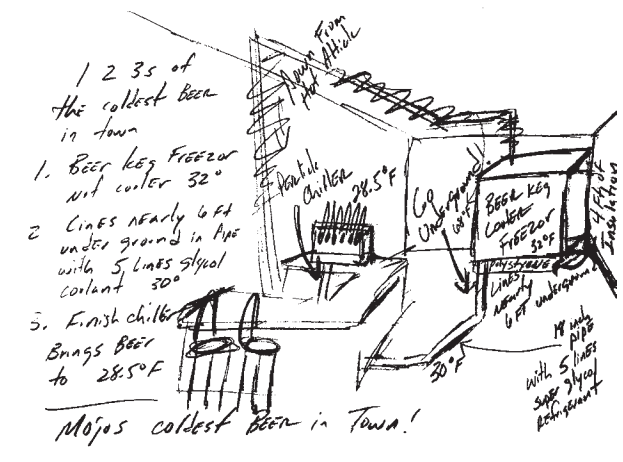 1 2 3s of
the coldest Beer
in town
1. Beer Keg Freezor
not cooler 32°
2 Lines nearly 6 ft
under ground in Pipe
with 5 Lines glycol
coolant 30°
3. Finish chiller
Brings Beer
to 28.5°F
Mojos coldest Beer in Town!
Down From
Hot Attick
Perlick
Chiller
28.5°F
Go
Underground!
68°F
Beer Keg
Cooler
Freezor
32°F
4 Ft of
Insulation
Polystyrene
Lines
nearly
6 ft underground
18 inch
Pipe
with 5 Lines
super glycol
Refrigerant
30°F